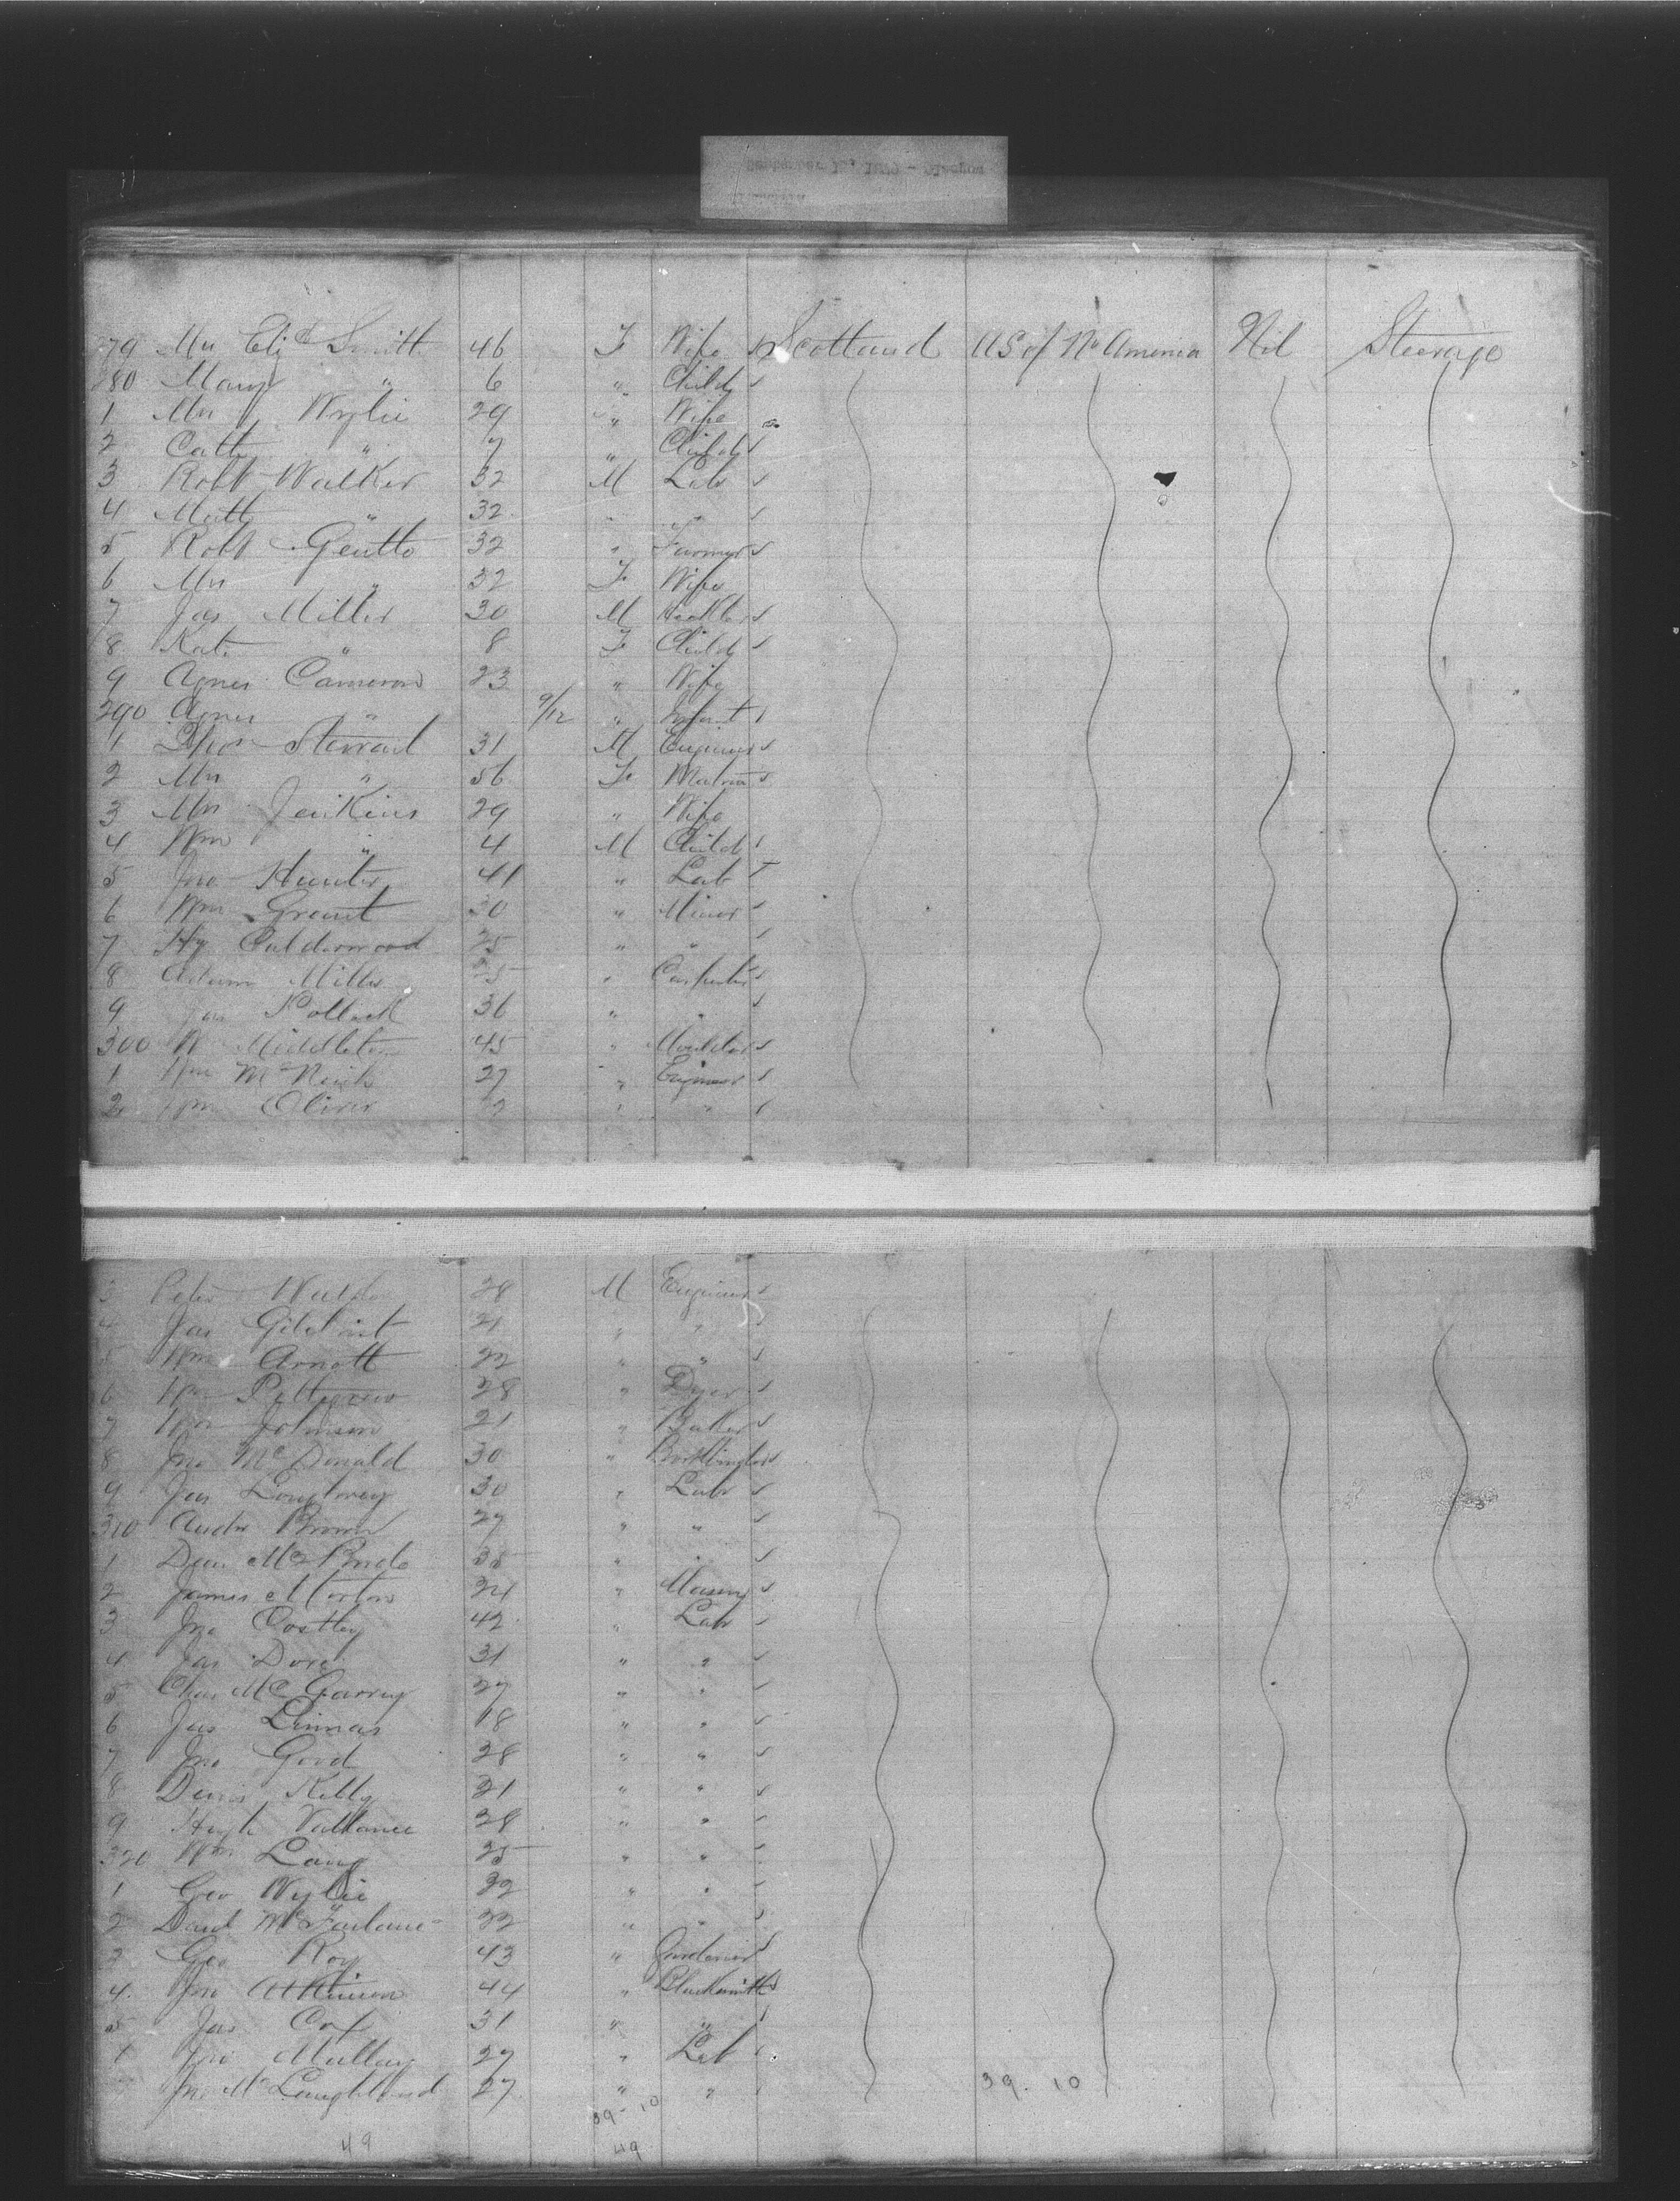 279 Mrs Eliz Smith 46 F Wife Scotland US of No America Nil Steerage
280 Mary " 6 " Child
1 Mrs J Wylie 29 " Wife
2 Cath " 7 " Child
3 Robt Walker 32 M Lab
4 Matt " 32 " "
5 Robt 32 " Farmer
6 Mrs " 32 F Wife
7 Jas Miller 30 M
8 Kate " 8 F Child
9 Agnes Cameron 23 " Wife
290 Agnes " 9/12 " Infant
1 Thos Stewart 31 M Engineer
2 Mrs " 56 F Matron
3 Mrs Jenkins 29 " Wife
4 Wm " 4 M Child
5 Jno Hunter 41 " Lab
6 Wm Grant 30 " Miner
7 Hy Calderwood 25 " "
8 Adam Miller " Carpenter
9 Jas Pollock 36 " "
300 W Middleton 45 " Moulder
1 Wm 27 " Engineer
2 Wm Oliver " "
3 Peter 28 M Engineer
4 Jas Gilchrist 21 " "
5 Wm Arnott 22 " "
6 Wm Pettigrew 28 " Dyer
7 Wm Johnson 21 " Baker
8 Jno McDonald 30 " Bookbinder
9 Jas Loughrey 30 " Lab
310 Andw Brown 27 " "
1 McBride 35 " "
2 James Morton 24 " Mason
3 Jno Costley 42 " Lab
4 Jas Dore 31 " "
5 Chas McGarvey 27 " "
6 Jas 18 " "
7 Jno Good 28 " "
8 Denis Kelly 21 " "
9 Hugh Vallance 28 " "
320 Wm Lang 25 " "
1 Geo Wylie 32 " "
2 David McFarlane 22 " "
3 Geo Roy 43 " Gardener
4 Jno Atkinson 44 " Blacksmith
5 Jas Cox 31 " "
Jno 27 " Lab
Jno McLaughland 27 " "
39 - 10 39 . 10
49 49